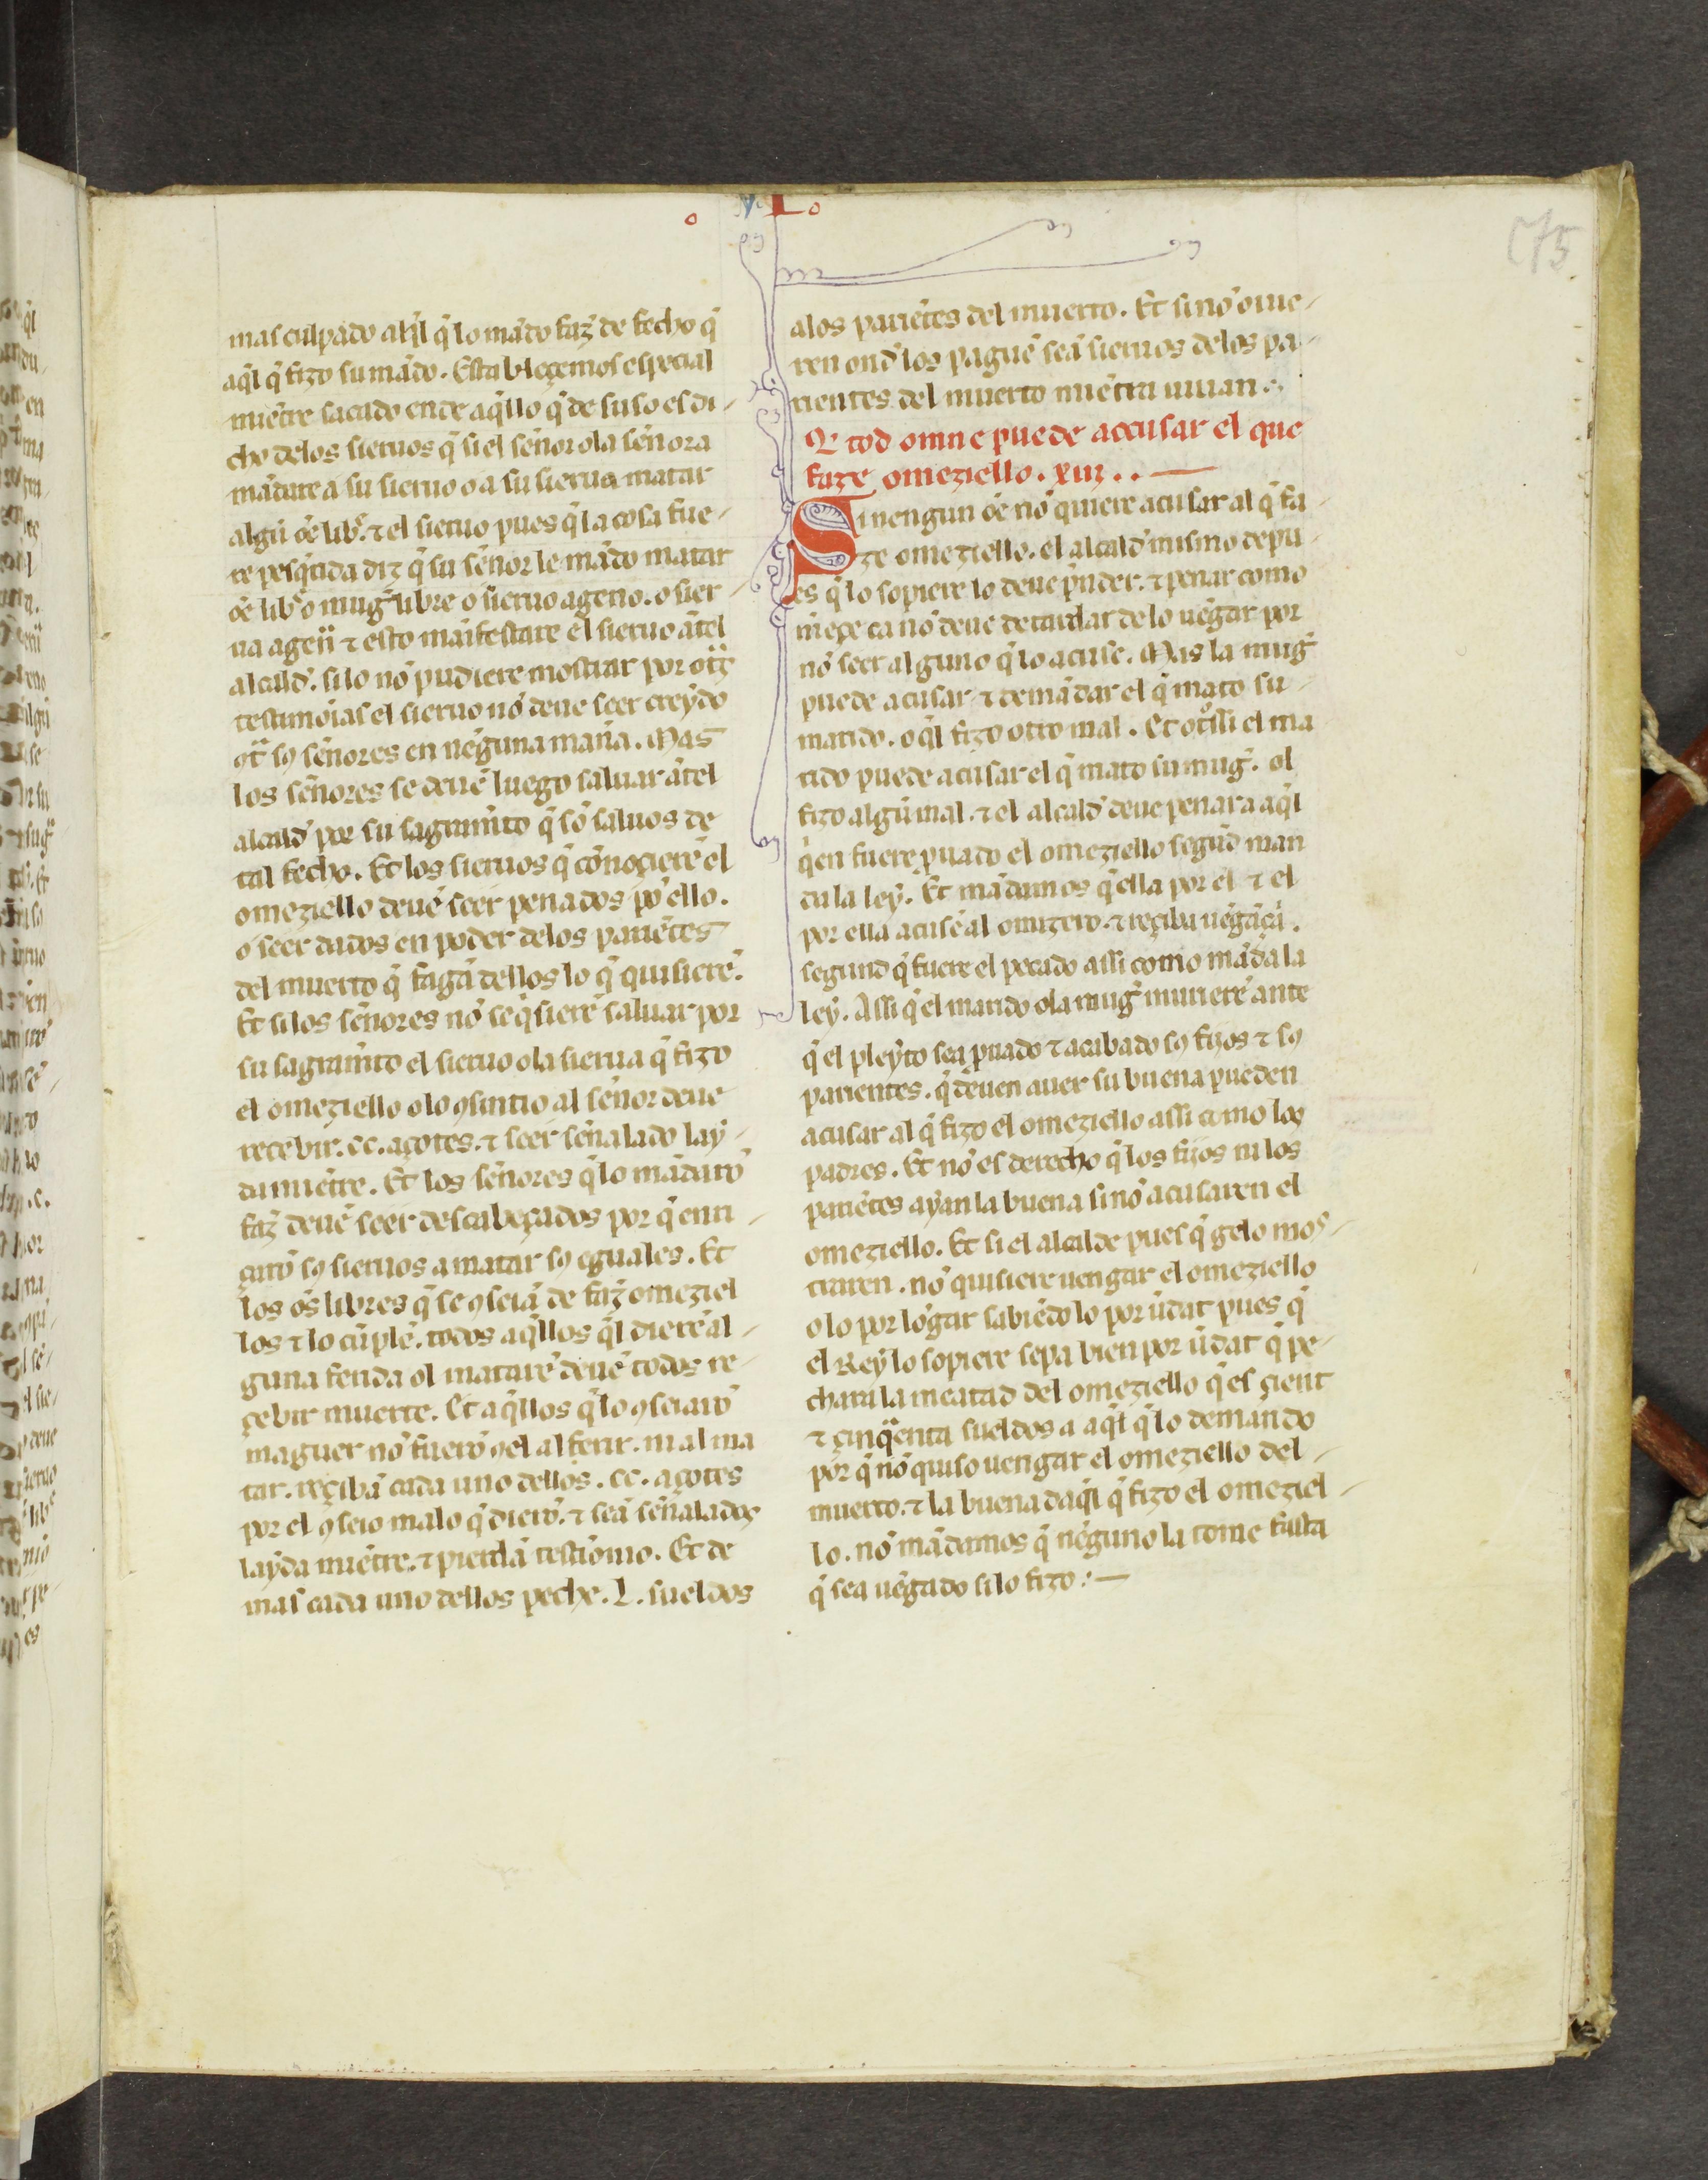 V. L
175
mas culpado aq̃l q̃ lo mãdo faz̃ de fecho q̃
aq̃l q̃ fizo su mãdo. Estableçemos espeçial
miẽtre sacado ende aq̃llo q̃ de suso es di-
cho delos sieruos q̃ si el señor ola señora
mãdare a su sieruo o a su sierua matar
algũ õe lib̃. ⁊ el sieruo pues q̃ la cosa fue-
re pesq̃rida diz q̃ su señor le mãdo matar
õe lib̃ o mug̃ libre o sieruo ageno. o sier-
ua ageña ⁊ esto manifestare el sieruo ãtel
alcald̃. si lo nõ pudiere mostrar por ot̃s
testimoĩas el sieruo nõ deue seer creydo
ꝯt̃ sꝯ señores en nẽguna mañā. Mas
los señores se deuẽ luego saluar ãtel
alcald̃ por su sagramẽto q̃ sõ saluos de
tal fecho. Et los sieruos q̃ cõnoçierẽ el
omeziello deuẽ seer penados por ello.
o seer dados en poder delos pariẽtes
del muerto q̃ fagã dellos lo q̃ quisierẽ.
Et si los señores nõ se q̃sierẽ saluar por
su sagramẽto el sieruo ola sierua q̃ fizo
el omeziello o lo ꝯsintio al señor deue
reçebir. cc. açotes. ⁊ seer señalado lay-
da miẽtre. Et los señores q̃ lo mãdarõ
faz̃ deuẽ seer descabeçados por q̃ enri-
çarõ sꝯ sieruos a matar sꝯ eguales. Et
los oẽs libres q̃ se ꝯseiã de faz̃ omeziel
los ⁊ lo cũplẽ. todos aq̃llos q̃l dierẽ al-
guna ferida ol matarẽ deuẽ todos re-
çebir muerte. Et aq̃llos q̃ lo ꝯseiarõ
maguer nõ fuerõ ꝯel al ferir. ni al ma
tar. reçibã cada uno dellos. cc. açotes
por el ꝯseio malo q̃ dierõ. ⁊ seã señalados
layda miẽtre. ⁊ pierdã testiõnio. Et de
mas cada uno dellos peche. L. sueldos
alos pariẽtes del muerto. Et si nõ ouie-
ren ond̃ los paguẽ seã sieruos delos pa-
rientes del muerto miẽtra uiuan.
Q̃ tod omne puede accusar el que
faze omeziello. xiiij..
Si nengun õe nõ quiere acusar al q̃ fa-
ze omeziello. el alcald̃ mismo depu-
es q̃ lo sopiere lo deue p̃nder. ⁊ penar como
m̃eçe ca nõ deue detardar de lo uẽgar por
nõ seer alguno q̃ lo acuse. Mas la mug̃
puede acusar ⁊ demãdar el q̃ mato su-
marido. o q̃l fizo otro mal. Et otr̃ssi el ma
rido puede acusar el q̃ mato su mug̃. ol
fizo algũ mal. ⁊ el alcald̃ deue penar a aq̃l
q̃en fuere puado el omeziello segũd man
da la ley. Et mãdamos q̃ ella por el ⁊ el
por ella acusẽ al omizero. ⁊ reçiba uẽgãça.
segund q̃ fuere el pecado assi como mãda la
ley. Assi q̃ el marido ola mug̃ murierẽ ante
q̃ el pleyto sea puado ⁊ acabado sꝯ fijos ⁊ sꝯ
parientes. q̃ deuen auer su buena pueden
acusar al q̃ fizo el omeziello assi como los
padres. Et nõ es derecho q̃ los fijos ni los
pariẽtes ayan la buena si nõ acusaren el
omeziello. Et si el alcalde pues q̃ gelo mos-
traren. nõ quisiere uengar el omeziello
o lo por lõgar sabiẽdo lo por ũdat pues q̃
el Rey lo sopiere sepa bien por ũdat q̃ pe-
chara la meatad del omeziello q̃ es çient
⁊ çinq̃enta sueldos a aq̃l q̃ lo demãndo
por q̃ nõ quiso uengar el omeziello del-
muerto. ⁊ la buena daq̃l q̃ fizo el omeziel-
lo. nõ mãdamos q̃ nẽguno la tome fasta
q̃ sea uẽgado si lo fizo:—